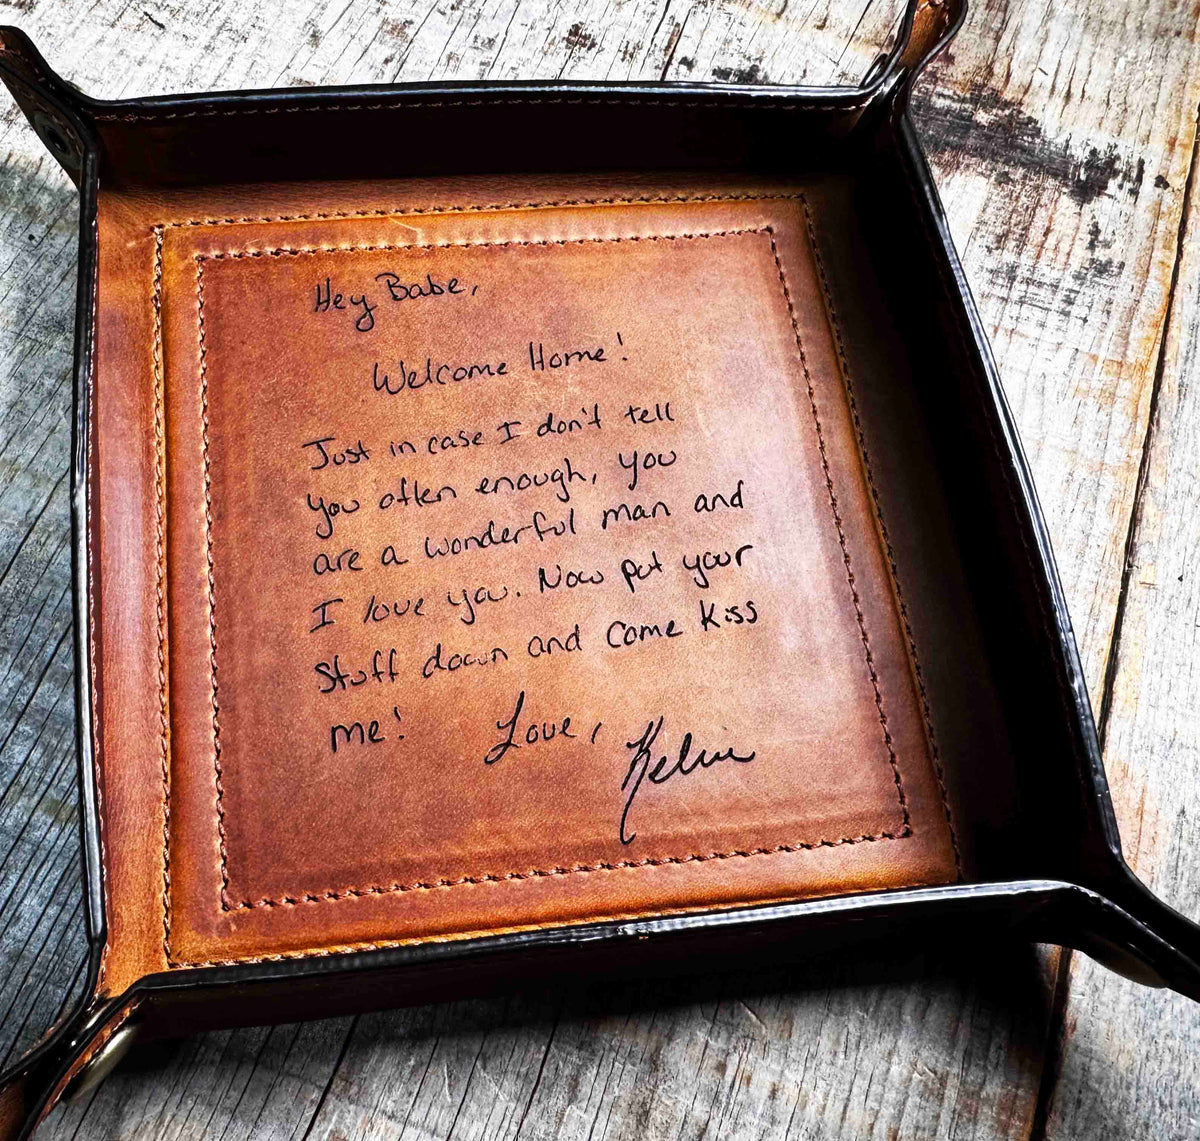 Hey Babe,
Welcome Home!
Just in case I don't tell
you often enough, you
are a wonderful man and
I love you. Now put your
stuff down and come kiss
me! Love,